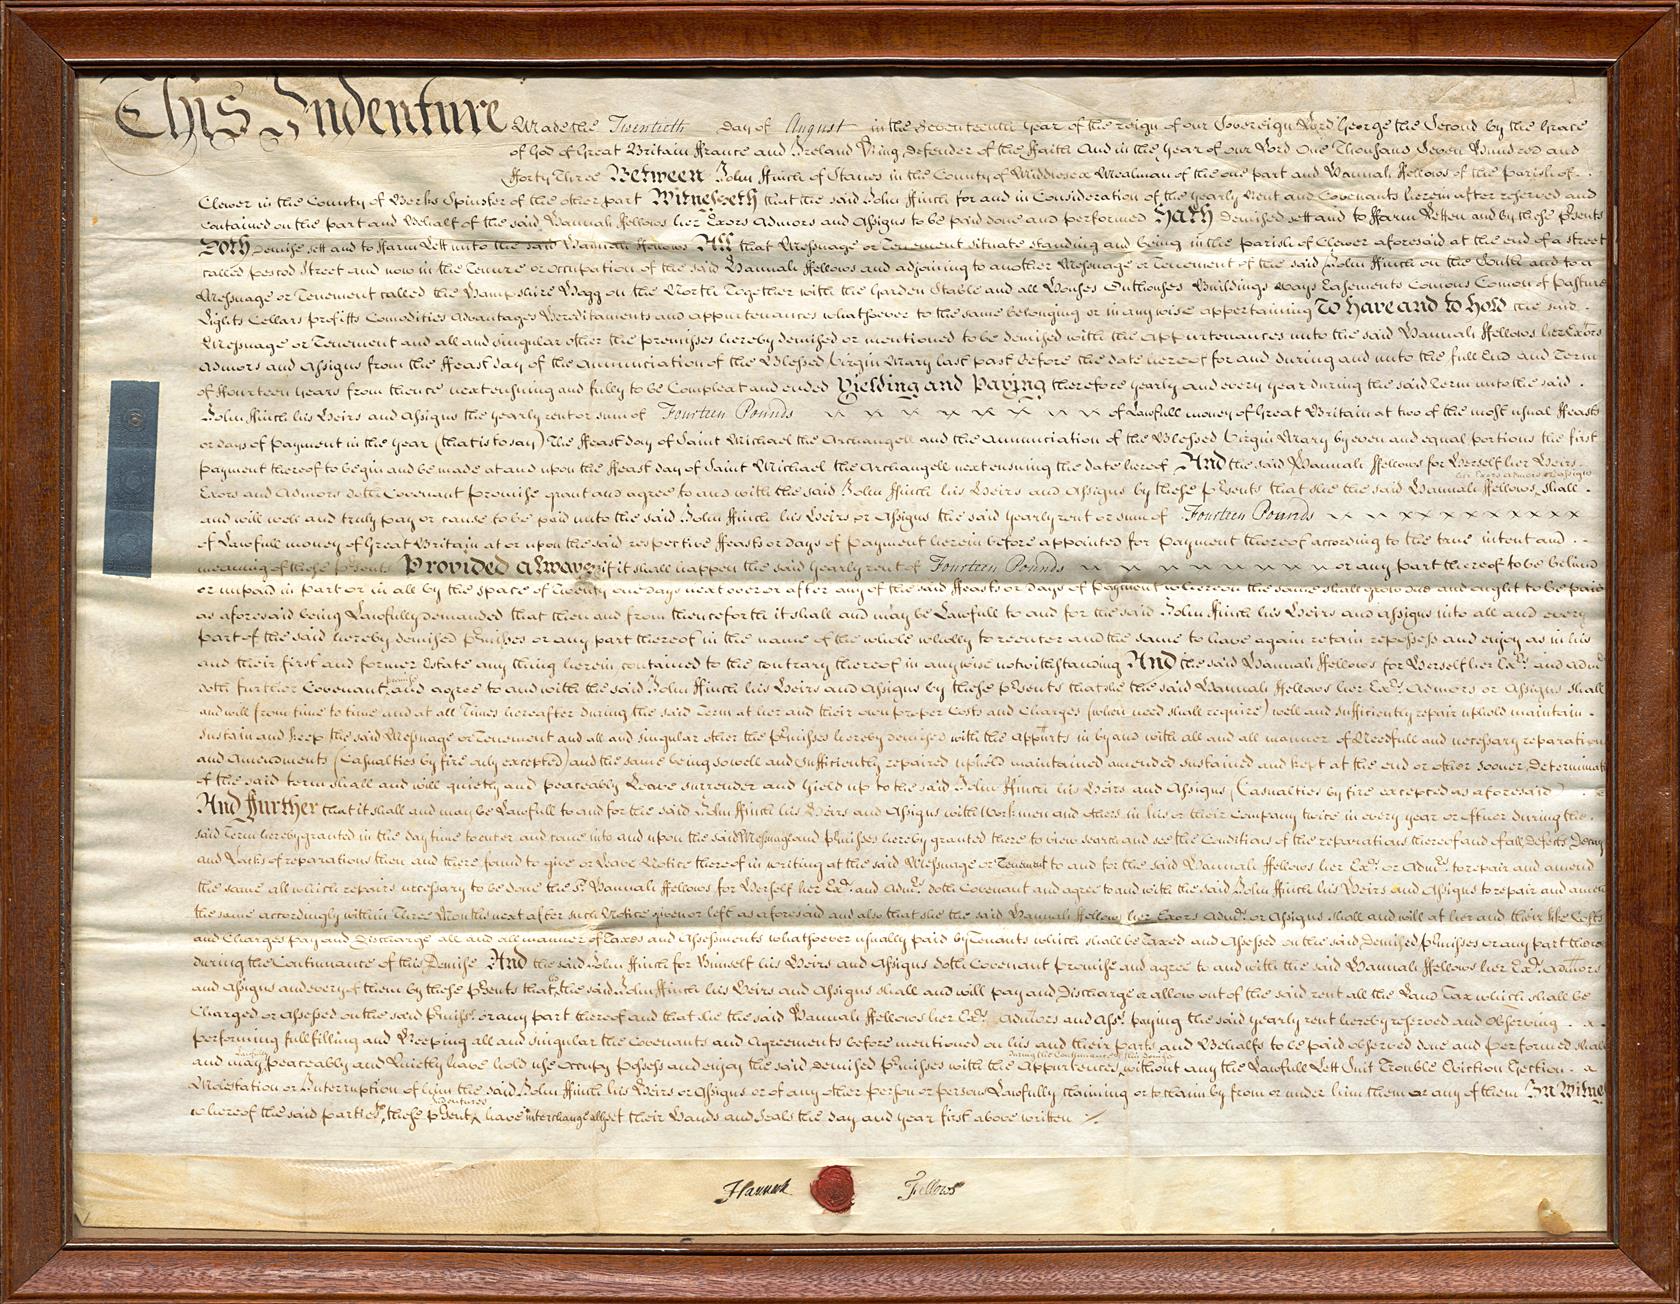 This Indenture Made the Twentieth Day of August in the Seventeenth Year of the reign of our Sovereign Lord George the Second by the Grace
of God of Great Britain ffrance and Ireland King Defender of the ffaith And in the Year of our Lord One Thousand Seven Hundred and
fforty Three Between John ffinch of Stanes in the County of Middlesex Mealman of the one part and Hannah ffellows of the Parish of
Clewer in the County of Berks Spinster of the other part Witnesseth that the said John ffinch for and in Consideration of the yearly Rent and Covenants herein after reserved and
contained on the part and Behalf of the said Hannah ffellows her Exors Admors and Assigns to be paid done and performed Hath Demised sett and to ffarm Letten and by these Psents
Doth Demise sett and to ffarm Lett unto the said Hannah ffellows All that Messuage or Tenement situate standing and being in the parish of Clewer aforesaid at the end of a Street
called Pescod Street and now in the Tenure or occupation of the said Hannah ffellows and adjoining to another Messuage or Tenement of the said John ffinch on the South and to a
Messuage or Tenement called the Hampshire Hogg on the North Together with the Garden Stable and all Houses Outhouses Buildings ways Easements Comons Comon of Pasture
Lights Cellars profitts Comodities Advantages Hereditaments and appurtenances whatsoever to the same belonging or in any wise appertaining To Have and to Hold the said
Messuage or Tenement and all and singular other the premisses hereby demised or mentioned to be demised with the Appurtenances unto the said Hannah ffellows her Exors
Admors and Assigns from the ffeast day of the Annunciation of the Blessed Virgin Mary last past before the date hereof for and during and unto the full End and Term
of ffourteen Years from thence next ensuing and fully to be Compleat and ended Yielding and Paying therefore yearly and every year during the said Term unto the said
John ffinch his Heirs and Assigns the yearly rent or sum of Fourteen Pounds of Lawfull money of Great Britain at two of the most usual ffeasts
or days of payment in the year (that is to say) The ffeast day of Saint Michael the Archangell and the Annunciation of the Blessed Virgin Mary by even and equal portions the first
payment thereof to begin and be made at and upon the ffeast day of Saint Michael the Archangell next ensuing the date hereof And the said Hannah ffellows for Herself her Heirs
Exors and Admors doth Covenant promise grant and agree to and with the said John ffinch his Heirs and Assigns by these Psents that she the said Hannah ffellows her Exors Admors or Assigns shall
and will well and truly pay or cause to be paid unto the said John ffinch his Heirs or Assigns the said yearly rent or sum of Fourteen Pounds
of Lawfull money of Great Britain at or upon the said respective ffeasts or days of payment herein before appointed for payment thereof according to the true intent and
meaning of these Psents Provided Always if it shall happen the said yearly rent of Fourteen Pounds or any part thereof to be behind
or unpaid in part or in all by the space of Twenty one days next over or after any of the said ffeasts or days of Payment whereon the same shall grow due and ought to be paid
as aforesaid being Lawfully demanded that then and from thenceforth it shall and may be Lawfull to and for the said John ffinch his Heirs and Assigns into all and every
part of the said hereby demised Pmisses or any part thereof in the name of the whole wholly to reenter and the same to have again retain repossess and enjoy as in his
and their first and former Estate any thing herein contained to the contrary thereof in any wise notwithstanding And the said Hannah ffellows for Herself her Exrs and Admrs
doth further Covenant promise and agree to and with the said John ffinch his Heirs and Assigns by these Psents that she the said Hannah ffellows her Exrs Admors or Assigns shall
and will from time to time and at all Times hereafter during the said Term at her and their own proper Costs and Charges (when need shall require) well and sufficiently repair uphold maintain
sustain and keep the said Messuage or Tenement and all and singular other the Pmisses hereby demised with the Appurts in by and with all and all manner of Needfull and necessary reparations
and Amendments (Casualties by fire only excepted) and the same being so well and sufficiently repaired upheld maintained amended sustained and kept at the end or other sooner Determinati
of the said term shall and will quietly and peaceably Leave surrender and Yield up to the said John ffinch his Heirs and Assigns (Casualties by fire excepted as aforesaid)
And further that it shall and may be Lawfull to and for the said John ffinch his Heirs and Assigns with Workmen and others in his or their Company twice in every year or oftner during the
said Term hereby granted in the day time to enter and come into and upon the said Messuage and Pmisses hereby granted there to view search and see the Condition of the reparations thereof and of all Defects Decays
and Lacks of reparations then and there found to give or Leave Notice thereof in writing at the said Messuage or Tenement to and for the said Hannah ffellows her Exrs or Admrs to repair and amend
the same all which repairs necessary to be done the sd Hannah ffellows for Herself her Exrs and Admrs doth Covenant and agree to and with the said John ffinch his Heirs and Assigns to repair and amend
the same accordingly within Three Months next after such Notice given or left as aforesaid and also that she the said Hannah ffellows her Exors Admrs or Assigns shall and will at her and their like Costs
and Charges pay and Discharge all and all manner of Taxes and Assessments whatsoever usually paid by Tenants which shall be Taxed and Assessed on the said Demised Pmisses or any part thereo
during the Continuance of this Demise And the said John ffinch for Himself his Heirs and Assigns doth Covenant Promise and agree to and with the said Hannah ffellows her Exrs Admors
and Assigns and every of them by these Psents that he the said John ffinch his Heirs and Assigns shall and will pay and Discharge or allow out of the said rent all the Land Tax which shall be
Charged or Assessed on the said Pmisses or any part thereof and that she the said Hannah ffellows her Exrs Admors and Asss paying the said yearly rent hereby reserved and Observing
performing fullfilling and Keeping all and singular the Covenants and Agreements before mentioned on his and their Parts and Behalfs to be paid observed done and performed shall
and may Lawfully peaceably and Quietly have hold use Occupy Possess and enjoy the said demised Pmisses with the Appurtences during the Continuance of this Demise without any the Lawfull Lett Suit Trouble Eviction Ejection
Molestation or Interruption of him the said John ffinch his Heirs or Assigns or of any other person or persons Lawfully claiming or to claim by from or under him them or any of them In Witness
whereof the said parties to these Psent Indentures have interchangeably set their Hands and Seals the day and year first above written
Hannah Fellows